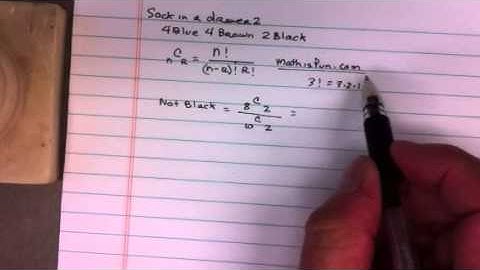 Sock in a drawer 2
4 Blue 4 Brown 2 Black
nCR = n! / (n-R)! R!
mathisfun.com
3! = 3.2.1
Not Black = 8C2 / 10C2 =